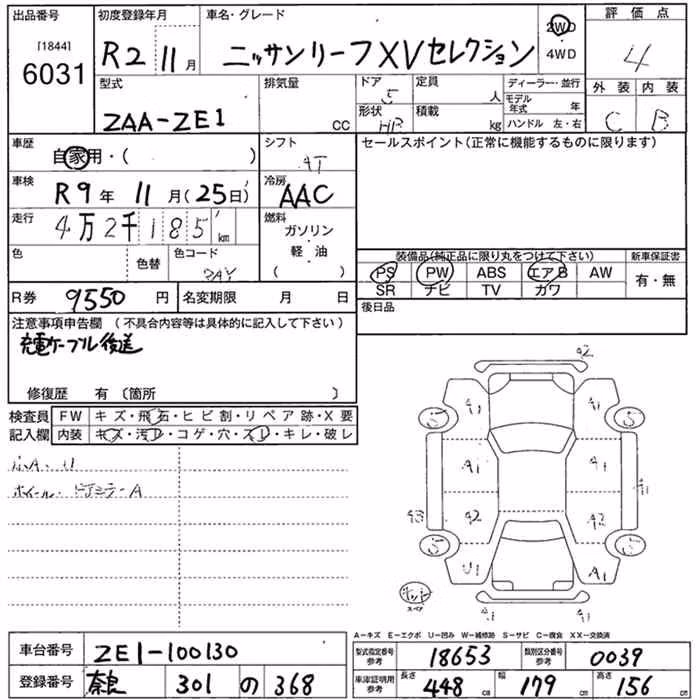 出品番号 初度登録年月 車名・グレード 2WD 評価点
[1844]
6031 R2 11月 ニッサンリーフXVセレクション 4WD 4
型式 排気量 ドア 5 定員 人 ディーラー・並行 外装 内装
モデル年式 年
ZAA-ZE1 CC 形状 HB 積載 kg ハンドル 左・右 C B
車歴 自家用・( ) シフト AT セールスポイント(正常に機能するものに限ります)
車検 R9年 11月(25日) 冷房 AAC
走行 4万2千185km 燃料 ガソリン・軽油 ( )
色 色替 色コード 装備品(純正品に限り丸をつけて下さい) 新車保証書
PS PW ABS エアB AW 有・無
SR ナビ TV カワ
R券 9550円 名変期限 月 日 後日品
注意事項申告欄 (不具合内容等は具体的に記入して下さい)
充電ケーブル後送
修復歴 有 〔箇所 〕
検査員 FW キズ・飛石・ヒビ割・リペア跡・X要
記入欄 内装 キズ・汚レ・コゲ・穴・スレ・キレ・破レ
A2
A1 A1
S S
A1 A1 A1
A3 A2 A2
S S
U1 A1
スペア
A1 A1
A-キズ E-エクボ U-凹み W-補修跡 S-サビ C-腐食 XX-交換済
車台番号 ZE1-100130 型式指定番号 参考 18653 類別区分番号 参考 0039
登録番号 奈良 301 の 368 車庫証明用 参考 長さ 448cm 幅 179cm 高さ 156cm